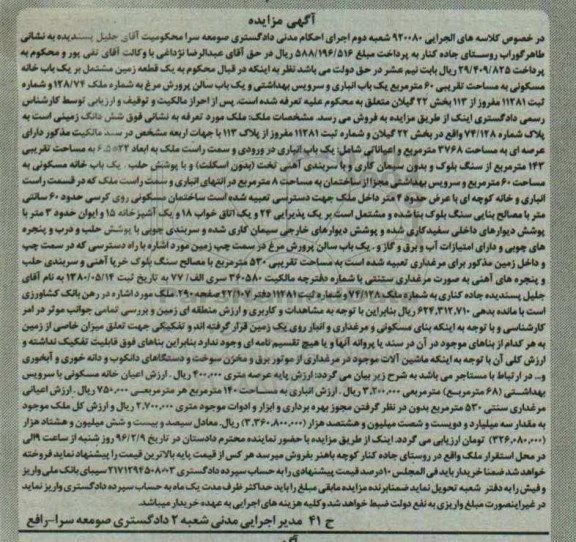 آگهی مزایده
در خصوص کلاسه های الجرایی ۹۲۰۰۸۰ شعبه دوم اجرای احکام مدنی دادگستری صومعه سرا محکومیت آقای جلیل پسندیده به نشانی
طاهرگوراب روستای جاده کنار به پرداخت مبلغ ۵۸۸/۱۹۶/۵۱۶ ریال در حق آقای عبدالرضا نژداغی با وکالت آقای تقی پور و محکوم به
پرداخت ۲۹/۴۰۹/۸۲۵ ریال بابت نیم عشر در حق دولت می باشد نظر به اینکه در قبال محکوم به یک قطعه زمین مشتمل بر یک باب خانه
مسکونی به مساحت تقریبی ۶۰ مترمربع یک باب انباری و سرویس بهداشتی و یک باب سالن پرورش مرغ به شماره ملک ۱۲۸/۷۴ و شماره
ثبت ۱۱۲۸۱ مفروز از ۱۱۳ بخش ۲۲ گیلان متعلق به محکوم علیه تعرفه شده است. پس از احراز مالکیت و توقیف و ارزیابی توسط کارشناس
رسمی دادگستری اینک از طریق مزایده به فروش می رسد. مشخصات ملک: ملک مورد تعرفه به نشانی فوق شش دانگ زمینی است به
پلاک شماره ۷۴/۱۲۸ واقع در بخش ۲۲ گیلان و شماره ثبت ۱۱۲۸۱ مفروز از پلاک ۱۱۳ با جهات اربعه مشخص در سند مالکیت مذکور دارای
عرصه ای به مساحت ۳۷۶۸ مترمربع و اعیانی شامل: یک باب انباری در ورودی و سمت راست ملک به ابعاد به مساحت تقریبی
۱۴۳ مترمربع از سنگ بلوک و بدون سیمان کاری و با سربندی آهنی تخت (بدون اسکلت) و با پوشش حلب. یک باب خانه مسکونی به
مساحت ۶۰ مترمربع و سرویس بهداشتی مجزا از ساختمان به مساحت ۸ مترمربع در انتهای انباری و سمت راست ملک که در قسمت راست
انباری و خانه کوچه ای با عرض حدود ۴ متر داخل ملک جهت دسترسی تعبیه شده است ساختمان مسکونی روی کرسی حدود ۶۰ سانتی
متر با مصالح بنایی سنگ بلوک بنا شده و مشتمل است بر یک پذیرایی ۲۴ و یک اتاق خواب ۱۸ و یک آشپزخانه ۱۵ و ایوان حدود ۳ متر با
پوشش دیوارهای داخلی سفیدکاری شده و پوشش دیوارهای خارجی سیمان کاری شده و سربندی چوبی با پوشش حلب و درب و پنجره
های چوبی و دارای امتیازات آب و برق و گاز و.. یک باب سالن پرورش مرغ در سمت چپ زمین مورد اشاره با راه دسترسی که در سمت چپ
و داخل زمین مذکور برای مرغداری تعبیه شده است به مساحت تقریبی ۵۳۰ مترمربع با مصالح سنگ بلوک خرپا آهنی و سربندی حلب
و پنجره های آهنی به صورت مرغداری سنتی با شماره دفترچه مالکیت ۳۶۰۵۸۰ سری الف/ ۷۷ به تاریخ ثبت ۱۳۸۰/۰۵/۱۴ به نام آقای
جلیل پسندیده جاده کناری به شماره ملک ۷۴/۱۲۸ و شماره ثبت ۱۱۴۸۱ دفتر ۲۲/۱۰۷ صفحه ۲۹۰. ملک مورد اشاره در رهن بانک کشاورزی
است با مانده بدهی ۶۲۴,۳۱۲,۷۱۰ ریال بنابراین با توجه به مشاهدات و کاربری و ارزش منطقه ای زمین و بررسی تمامی جوانب موثر در امر
کارشناسی و با توجه به اینکه بنای مسکونی و مرغداری و انبار روی یک زمین قرار گرفته اند و تفکیکی جهت تعلق میزان خاصی از زمین
به هر کدام از بناهای موجود در آن در سند یا پروانه آنها و یا هیچ تقسیم نامه ای وجود ندارد بنابراین بناهای فوق قابلیت تفکیک نداشته و
ارزش کلی آن با توجه به اینکه ماشین آلات موجود در مرغداری از موتور برق و مخزن سوخت و دستگاههای دانکوب و دانه خوری و آبخوری
و... در ارتباط با مستاجر می باشد به شرح زیر بیان می گردد: ارزش پایه عرصه متری ۴۰۰,۰۰۰ ریال. ارزش اعیان خانه مسکونی با سرویس
بهداشتی (۶۸ مترمربع) مترمربعی ۳,۲۰۰,۰۰۰ ریال. ارزش انباری به مساحت ۱۴۰ مترمربع هر مترمربعی ۷۵۰,۰۰۰ ریال. ارزش اعیانی
مرغداری سنتی ۵۳۰ مترمربع بدون در نظر گرفتن مجوز بهره برداری و ابزار و ادوات موجود متری ۲,۷۰۰,۰۰۰ ریال و ارزش کل ملک موجود
به مقدار سه میلیارد و دویست و شصت میلیون و هشتصد هزار (۳,۲۶۰,۸۰۰,۰۰۰) ریال، معادل سیصد و بیست و شش میلیون و هشتاد هزار
(۳۲۶,۰۸۰,۰۰۰) تومان ارزیابی می گردد. اینک از طریق مزایده با حضور نماینده محترم دادستان در تاریخ ۹۶/۲/۹ روز شنبه از ساعت ۹ الی
در محل استقرار ملک واقع در روستای جاده کنار کوچه باهنر بفروش میرسد هر کس از قیمت پایه بالاترین قیمت را پیشنهاد نماید فروخته
خواهد شد ضمنا خریدار باید فی المجلس ۱۰ درصد قیمت پیشنهادی را به حساب سپرده دادگستری ۲۱۷۱۲۹۲۵۰۸۰۰۳ سیبای بانک ملی واریز
و فیش را به دفتر شعبه تحویل نماید ضمنا برنده مزایده مابقی مبلغ را باید حداکثر ظرف مدت یک ماه به حساب سپرده دادگستری واریز نماید
در غیر اینصورت مبلغ واریزی به نفع دولت ضبط خواهد شد و کلیه هزینه های اجرایی به عهده خریدار میباشد.
ح ۴۱ مدیر اجرایی مدنی شعبه ۲ دادگستری صومعه سرا-رافع